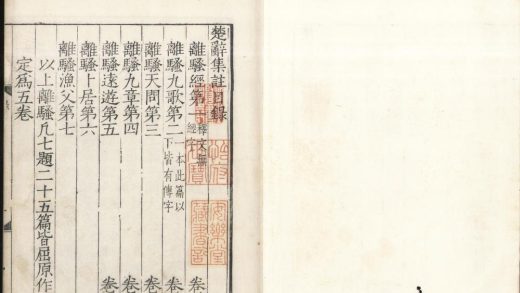 楚辭集註目録
離騷經第一 釋文無經字 卷
離騷九歌第二 一本此篇以下皆有傳字 卷
離騷天問第三 卷
離騷九章第四 卷
離騷遠遊第五 卷
離騷卜居第六
離騷漁父第七
以上離騷凡七題二十五篇皆屈原作
定爲五卷